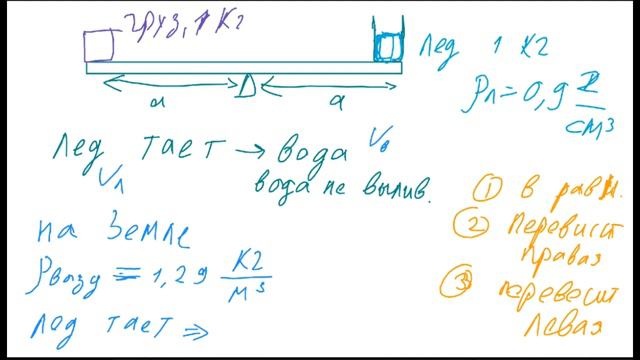 груз, 1 кг
лед 1 кг
a
a
ρл = 0,9 г/см³
лед тает → вода
Vл
Vв
вода не вылив.
на Земле
ρвозд = 1,29 кг/м³
лед тает ⇒
① в равн.
② перевесит
правая
③ перевесит
левая